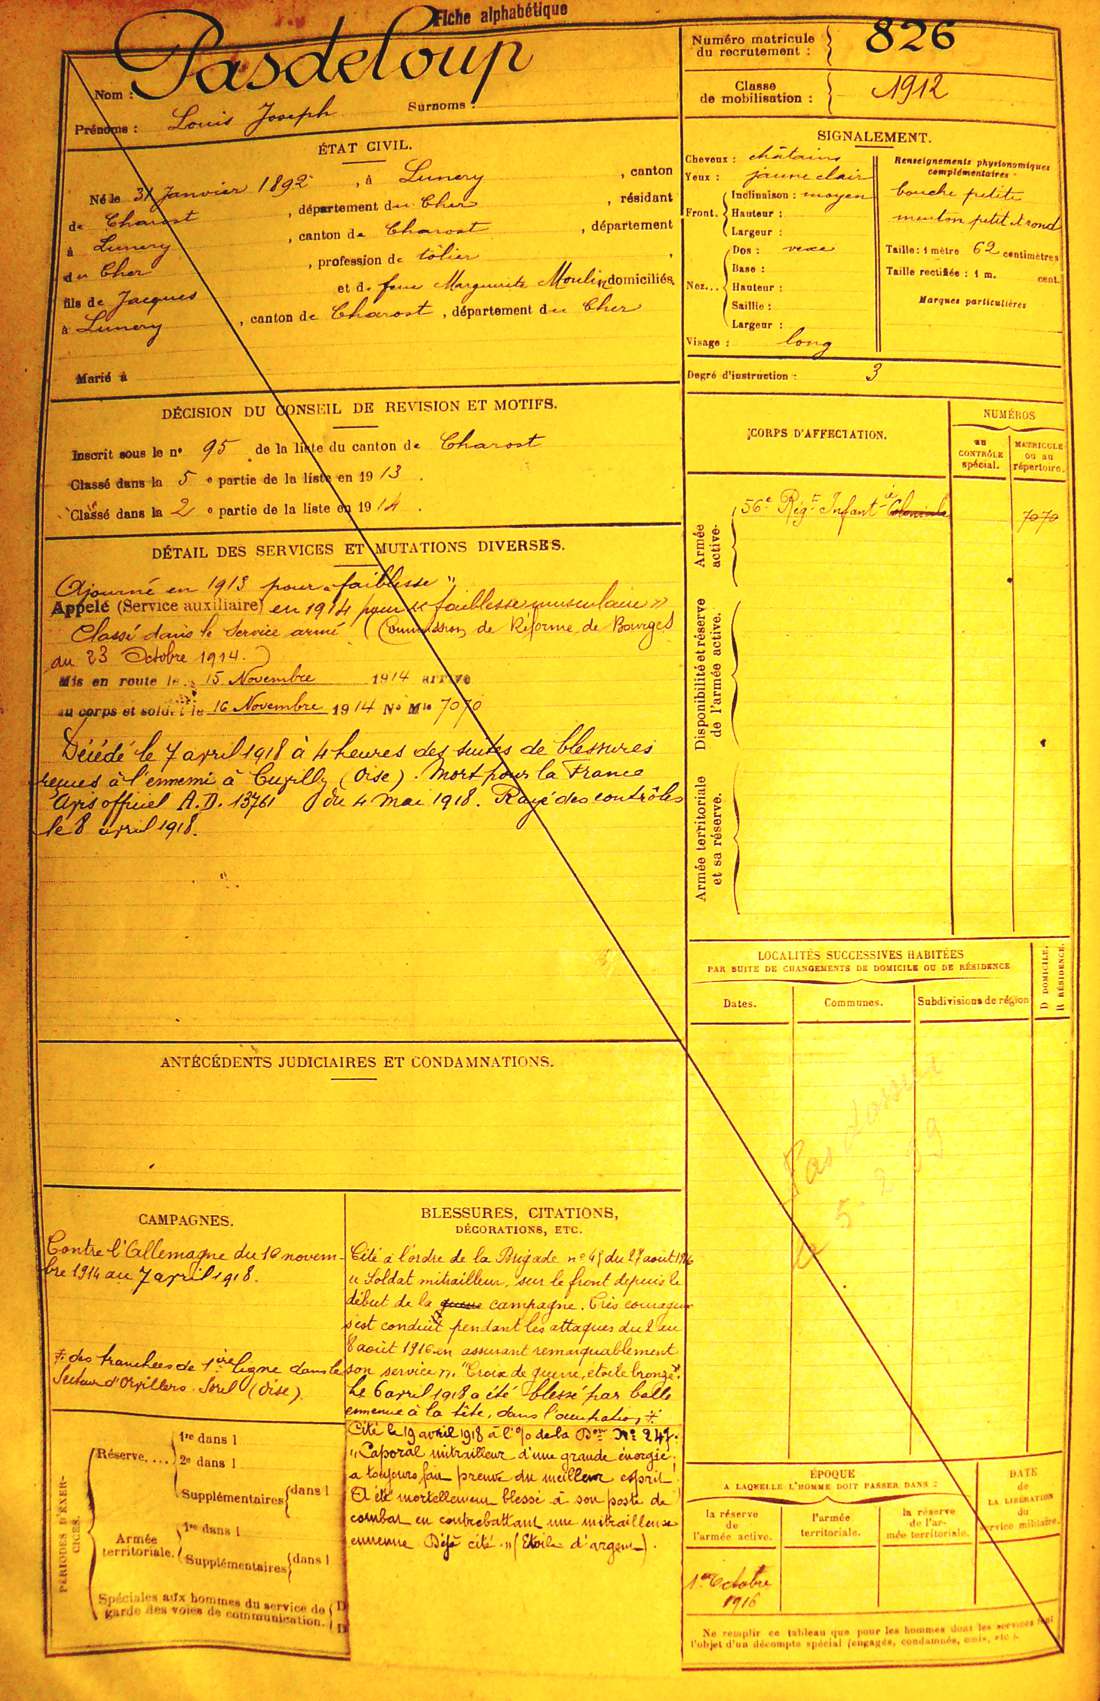 Fiche alphabétique
Nom : Pasdeloup
Prénoms : Louis Joseph Surnoms :
Numéro matricule du recrutement : 826
Classe de mobilisation : 1912
ÉTAT CIVIL.
Né le 31 Janvier 1892, à Lunery, canton
de Charost, département du Cher, résidant
à Lunery, canton de Charost, département
du Cher, profession de tôlier,
fils de Jacques et de feue Marguerite Moulin, domiciliés
à Lunery, canton de Charost, département du Cher
Marié à
SIGNALEMENT.
Cheveux : châtains
Yeux : jaune clair
Front. Inclinaison : moyen
Hauteur :
Largeur :
Nez... Dos : vexe
Base :
Hauteur :
Saillie :
Largeur :
Visage : long
Renseignements physionomiques complémentaires
bouche petite
menton petit et rond
Taille : 1 mètre 62 centimètres
Taille rectifiée : 1 m. cent.
Marques particulières
Degré d'instruction : 3
DÉCISION DU CONSEIL DE REVISION ET MOTIFS.
Inscrit sous le n° 95 de la liste du canton de Charost
Classé dans la 5 e partie de la liste en 1913.
Classé dans la 2 e partie de la liste en 1914.
DÉTAIL DES SERVICES ET MUTATIONS DIVERSES.
Ajourné en 1913 pour "faiblesse"
Appelé (Service auxiliaire) en 1914 pour « faiblesse musculaire »
Classé dans le Service armé (Commission de Réforme de Bourges
du 23 Octobre 1914.)
Mis en route le 15 Novembre 1914 arrivé
au corps et soldat le 16 Novembre 1914 No Mle 7070
Décédé le 7 avril 1918 à 4 heures des suites de blessures
reçues à l'ennemi à Cuvilly (Oise). Mort pour la France
Avis officiel A.D. 13761 du 4 Mai 1918. Rayé des contrôles
le 8 avril 1918.
CORPS D'AFFECTATION.
NUMÉROS
au CONTRÔLE spécial.
MATRICULE ou au répertoire.
Armée active.
56e Régt Infant ie Coloniale 7070
Disponibilité et réserve de l'armée active.
Armée territoriale et sa réserve.
LOCALITÉS SUCCESSIVES HABITÉES
PAR SUITE DE CHANGEMENTS DE DOMICILE OU DE RÉSIDENCE
Dates. Communes. Subdivisions de région
D DOMICILE. R RÉSIDENCE.
Pas dossier
le 5. 2. 39
ANTÉCÉDENTS JUDICIAIRES ET CONDAMNATIONS.
CAMPAGNES.
Contre l'Allemagne du 16 novem-
bre 1914 au 7 avril 1918.
des tranchées de 1ère ligne dans le
Secteur d'Orvillers-Sorel (Oise).
BLESSURES, CITATIONS,
DÉCORATIONS, ETC.
Cité à l'ordre de la Brigade n° 45 du 27 août 1916
"Soldat mitrailleur, sur le front depuis le
début de la guerre campagne. Très courageux
s'est conduit pendant les attaques du 2 au
8 août 1916 en assurant remarquablement
son service". "Croix de guerre, étoile bronze".
Le 6 avril 1918 a été blessé par balle
ennemie à la tête, dans l'occupation
Cité le 19 avril 1918 à l'O/ de la Don No 247.
"Caporal mitrailleur d'une grande énergie.
a toujours fait preuve du meilleur esprit.
A été mortellement blessé à son poste de
combat en contrebattant une mitrailleuse
ennemie Déjà cité." (Etoile d'argent).
PÉRIODES D'EXERCICES.
Réserve.... 1re dans l
2e dans l
Supplémentaires dans l
Armée territoriale. 1re dans l
Supplémentaires dans l
Spéciales aux hommes du service de garde des voies de communication.
ÉPOQUE
A LAQUELLE L'HOMME DOIT PASSER DANS :
la réserve de l'armée active.
l'armée territoriale.
la réserve de l'armée territoriale.
DATE de LA LIBÉRATION du service militaire.
1er Octobre 1916
Ne remplir ce tableau que pour les hommes dont les services font
l'objet d'un décompte spécial (engagés, condamnés, omis, etc.).